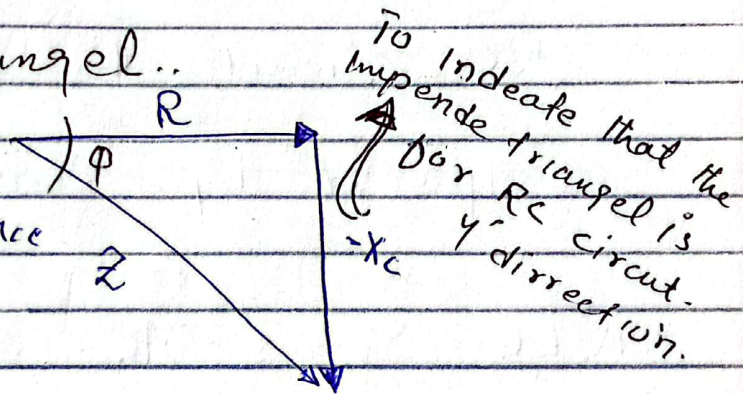 angel..
R
φ
Z
-Xc
To Indeate that the
Impende triangel is
Dor RC circut.
y- dirrection.